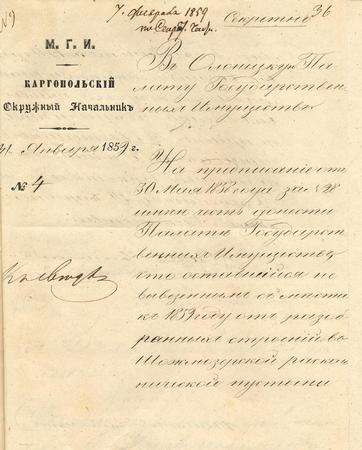 7. февраля 1859
по Секр. Части.
Секретно
36
М. Г. И.
КАРГОПОЛЬСКІЙ
Окружный Начальникъ
31. Января 1859 г.
№ 4
Въ Олонецкую Па-
лату Государствен-
ныхъ Имуществъ
На предписаніе отъ
30 Мая 1858 года за № 28
имѣю честь донести
Палатѣ Государст-
венныхъ Имуществъ
что оставшійся не
вывезеннымъ съ мѣста
къ 1859 году отъ разо-
бранныхъ строеній въ
Шожмозерской расколь-
нической пустыни